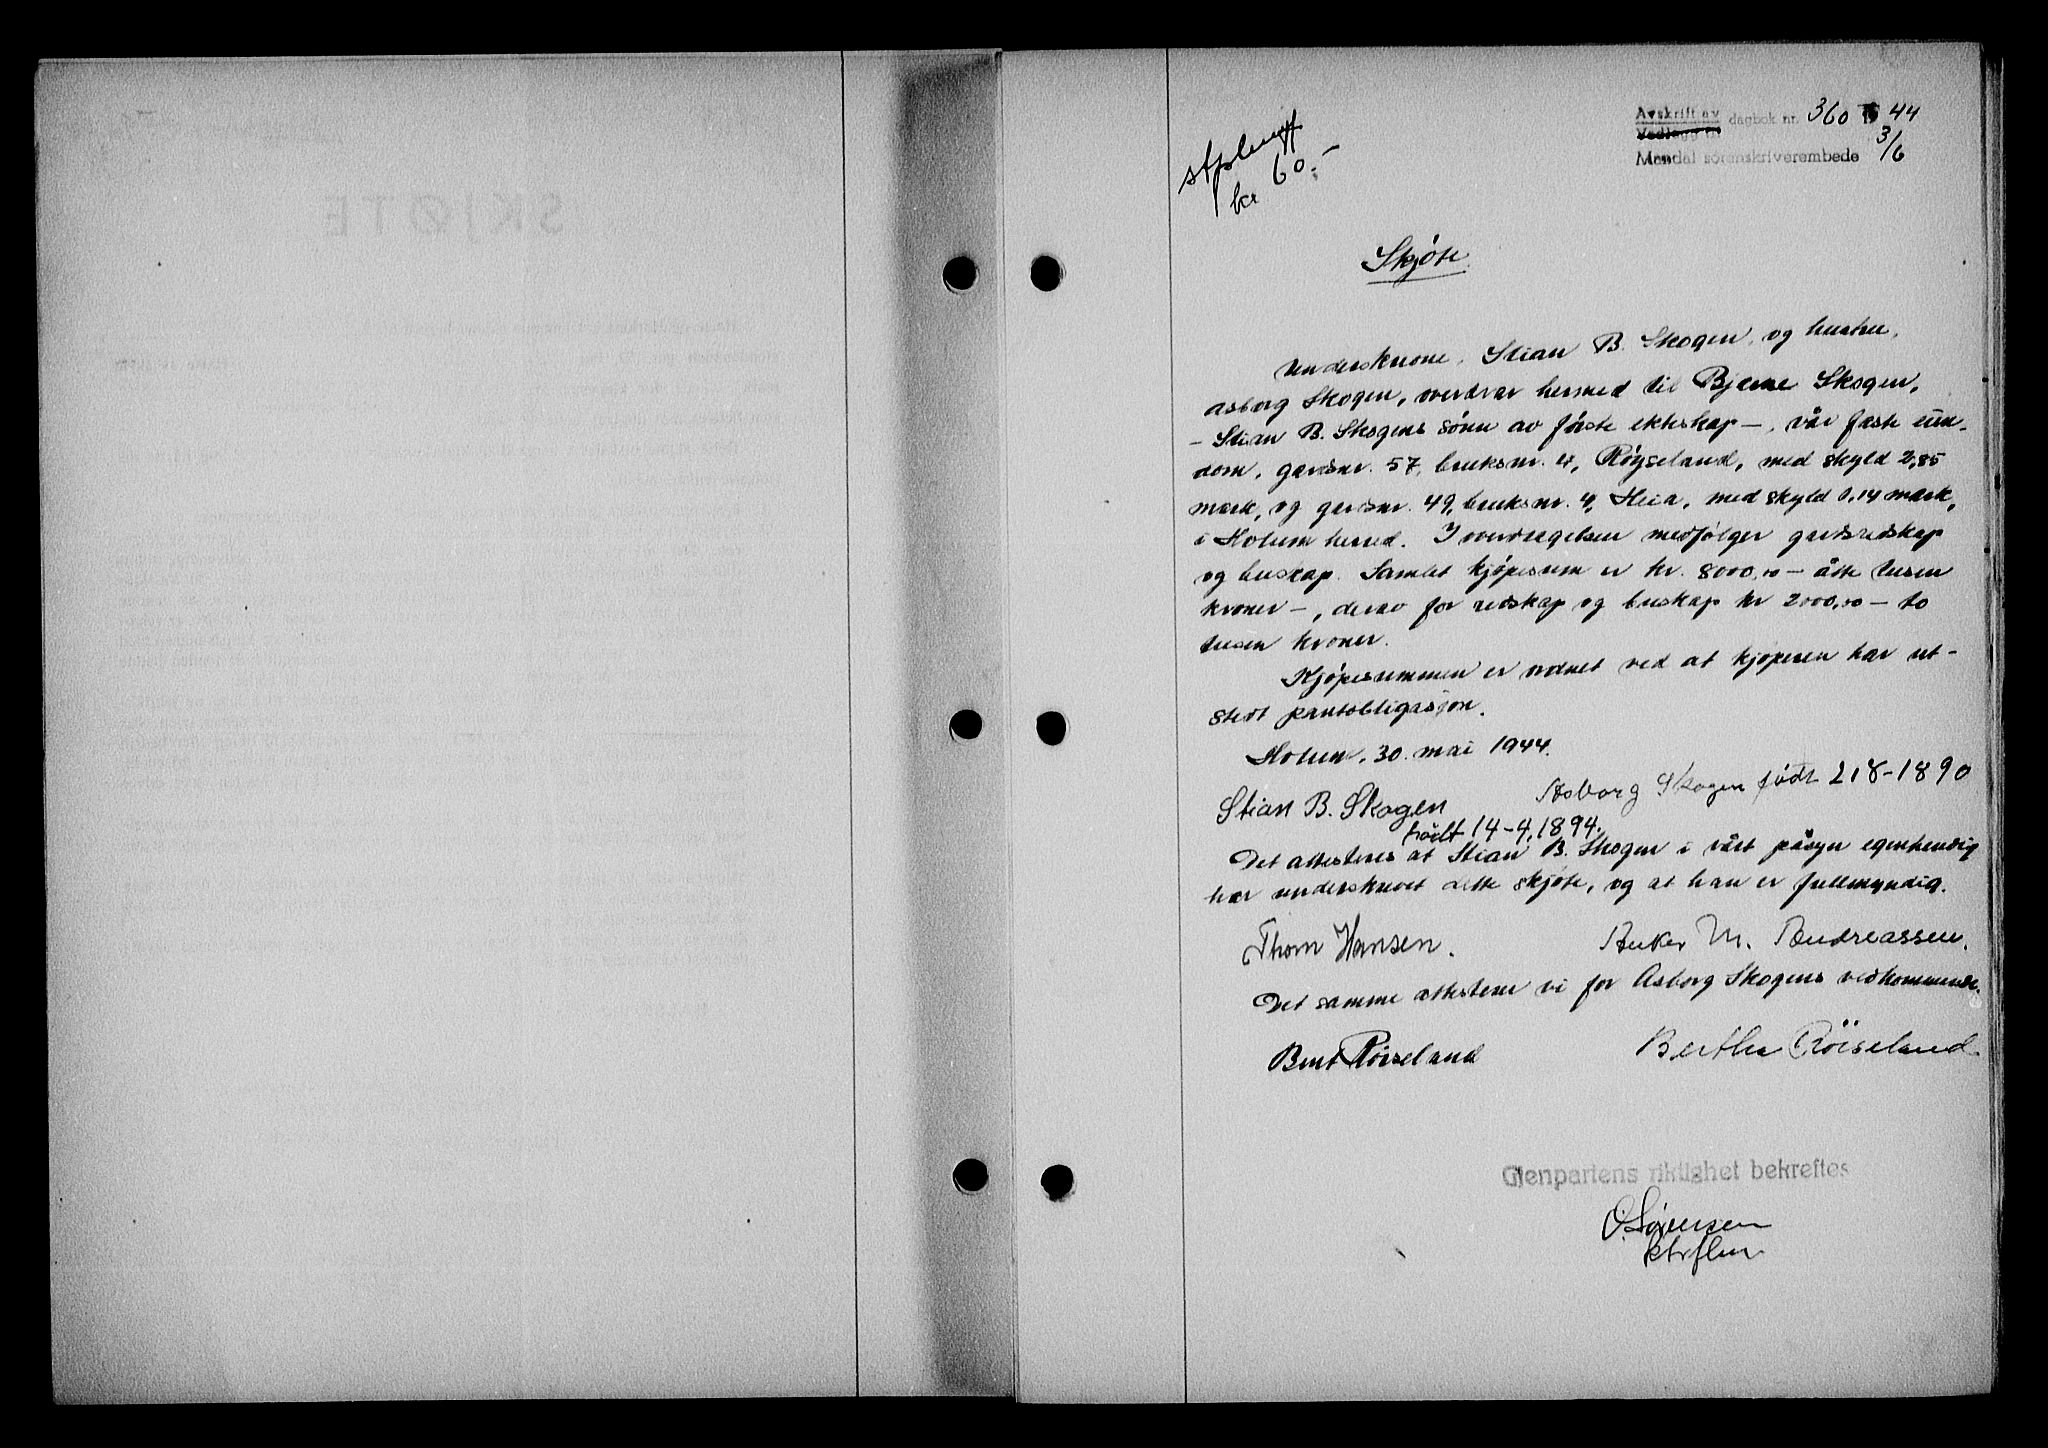 SKJØTE
Avskrift av dagbok nr. 360 19 44
Vedlegg til 3/6
Mandal sorenskriverembede
kr 60.-
Skjøte.
Underskrevne, Stian B. Skogen, og hustru,
Asborg Skogen, overdrar hermed til Bjarne Skogen,
- Stian B. Skogens sønn av første ekteskap -, vår faste eien-
dom, gårdsnr. 57, bruksnr. 4, Røyseland, med skyld 2,85
mark, og gårdsnr. 49, bruksnr. 4, Heia, med skyld 0,14 mark,
i Holum herred. I overdragelsen medfølger gårdsredskap
og buskap. Samlet kjøpesum er kr. 8000,00 - åtte tusen
kroner -, derav for redskap og buskap kr 2000,00 - to
tusen kroner.
Kjøpesummen er ordnet ved at kjøperen har ut-
stedt pantobligasjon.
Holum, 30. mai 1944.
Stian B. Skogen Asborg Skogen født 218-1890
født 14-4.1894.
Det attesteres at Stian B. Skogen i vårt påsyn egenhendig
har underskrevet dette skjøte, og at han er fullmyndig.
Thom Hansen. Anker M. Andreassen.
Det samme attesterer vi for Asborg Skogens vedkommende.
Bent Røiseland Bertha Røiseland
Gjenpartens riktighet bekreftes
O. Sørensen
ktrflm